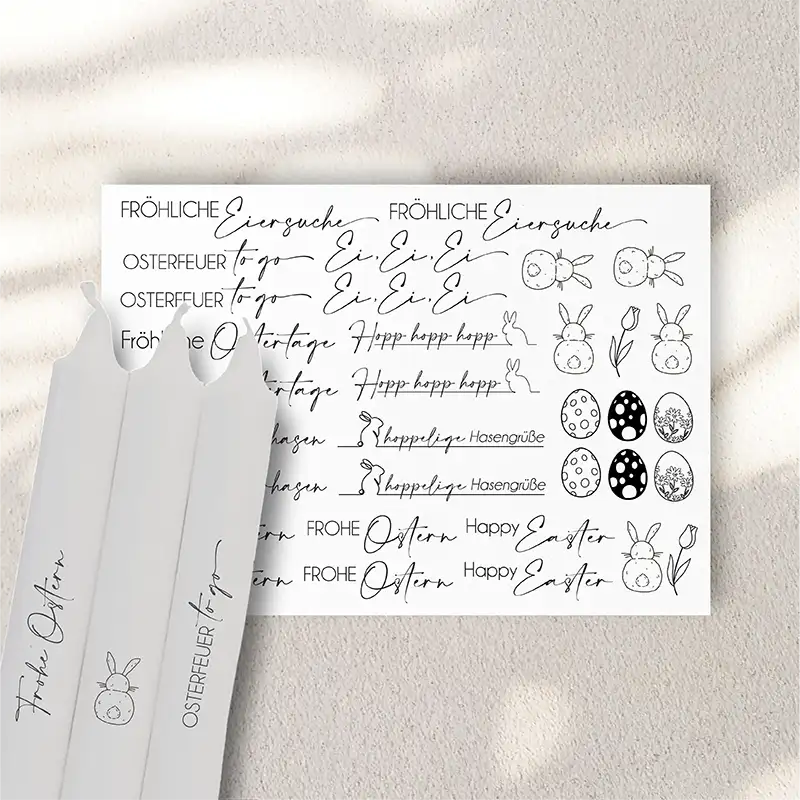 FRÖHLICHE Eiersuche FRÖHLICHE Eiersuche
OSTERFEUER to go Ei, Ei, Ei
OSTERFEUER to go Ei, Ei, Ei
Fröhliche Ostertage Hopp hopp hopp
Hopp hopp hopp
hoppelige Hasengrüße
hoppelige Hasengrüße
FROHE Ostern Happy Easter
FROHE Ostern Happy Easter
Frohe Ostern
OSTERFEUER to go